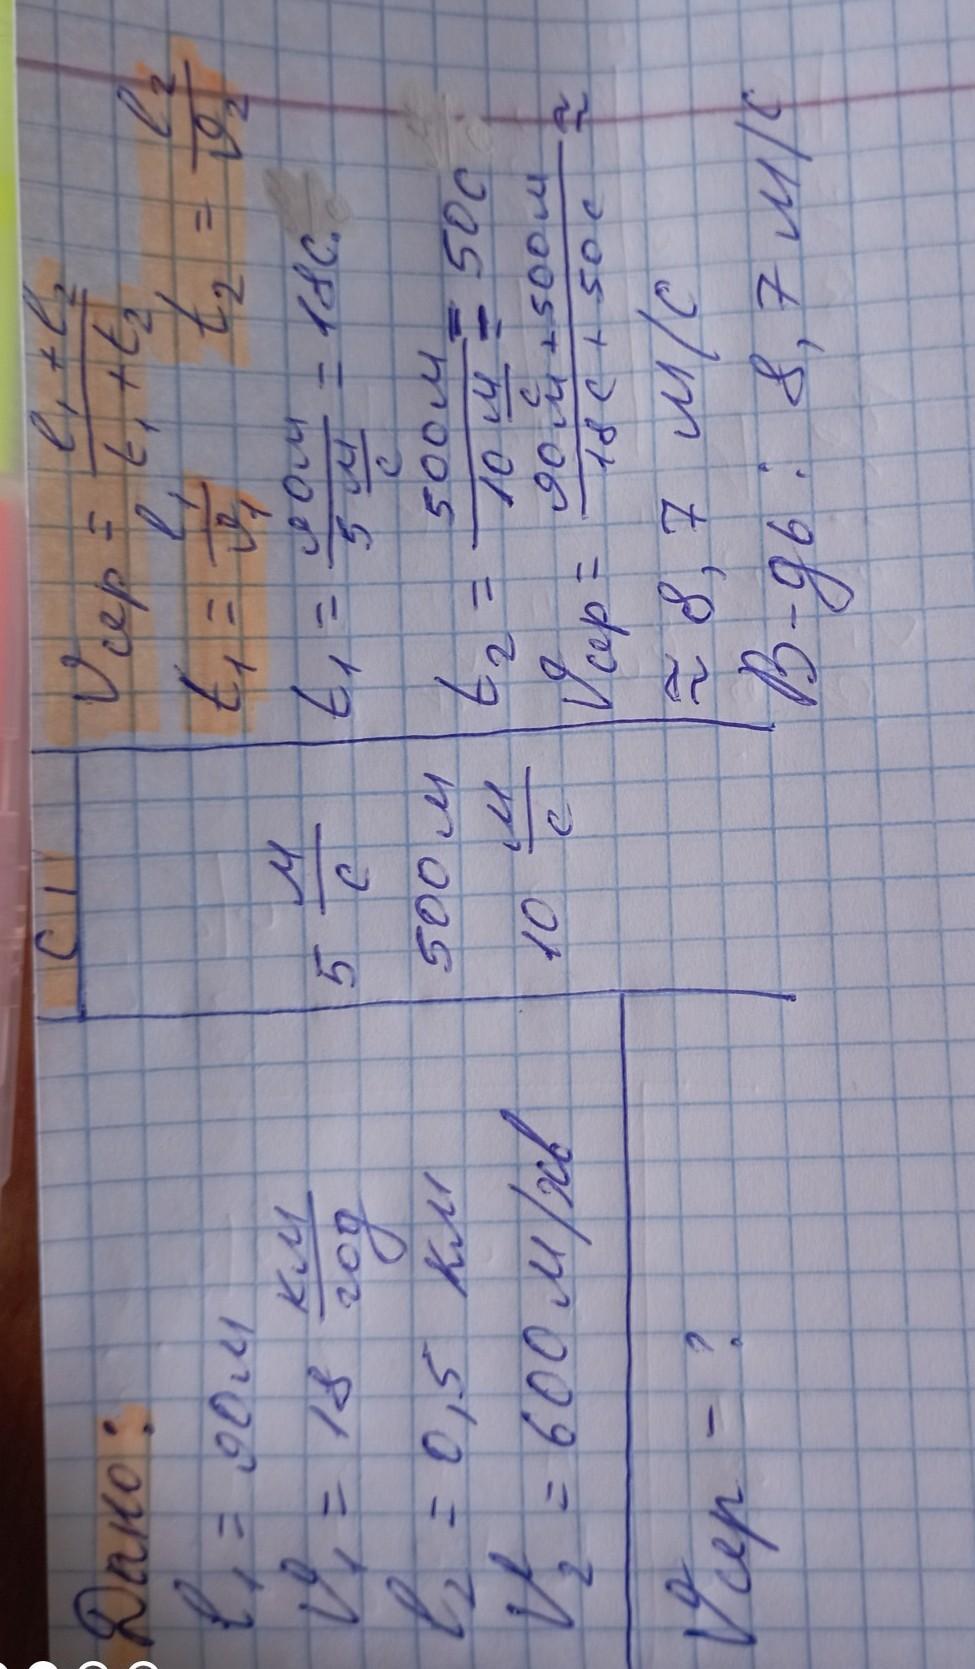 Дано:
l₁ = 90 м
V₁ = 18 км/год
l₂ = 0,5 км
V₂ = 600 м/хв
Vсер - ?
СІ
5 м/с
500 м
10 м/с
Vсер = (l₁ + l₂)/(t₁ + t₂)
t₁ = l₁/V₁ t₂ = l₂/V₂
t₁ = 90м/(5 м/с) = 18с.
t₂ = 500м/(10 м/с) = 50с
Vсер = (90м + 500м)/(18с + 50с) ≈
≈ 8,7 м/с
В-дь: 8,7 м/с